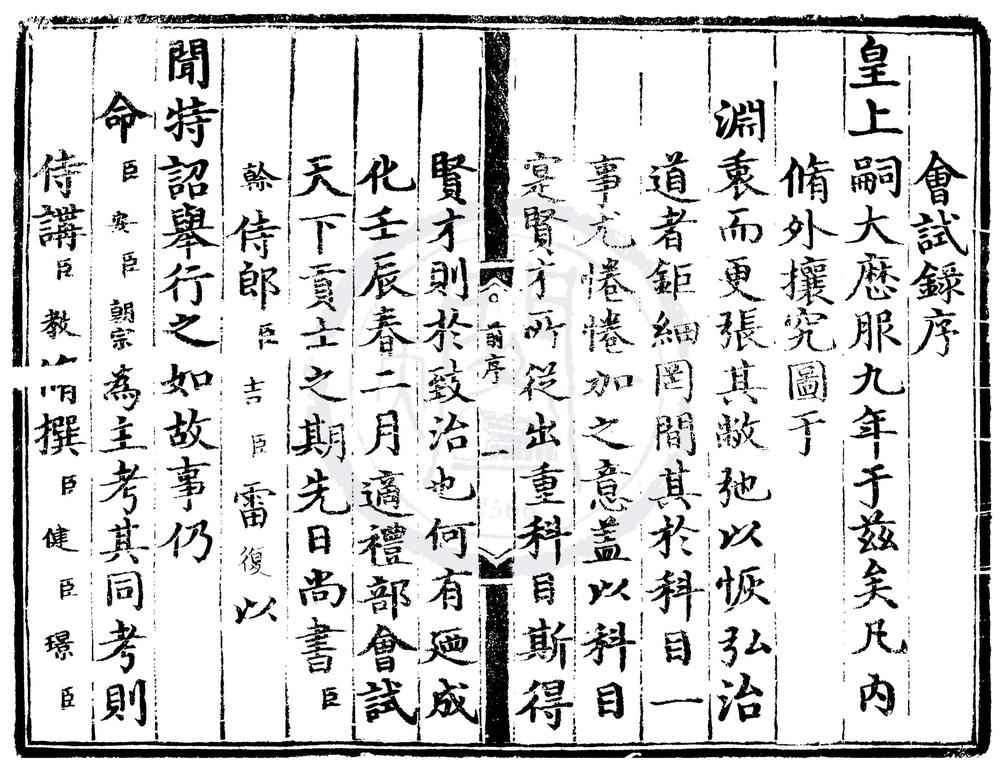 會試錄序
皇上嗣大歷服九年于茲矣凡内
脩外攘究圖于
淵衷而更張其敝弛以恢弘治
道者鉅細罔間其於科目一
事尤惓惓加之意盖以科目
寔賢才所從出重科目斯得
前序
一
賢才則於致治也何有廼成
化壬辰春二月適禮部會試
天下貢士之期先日尚書臣
幹侍郎臣吉臣雷復以
聞特詔舉行之如故事仍
命臣安臣朝宗為主考其同考則
侍講臣教脩撰臣健臣璟臣